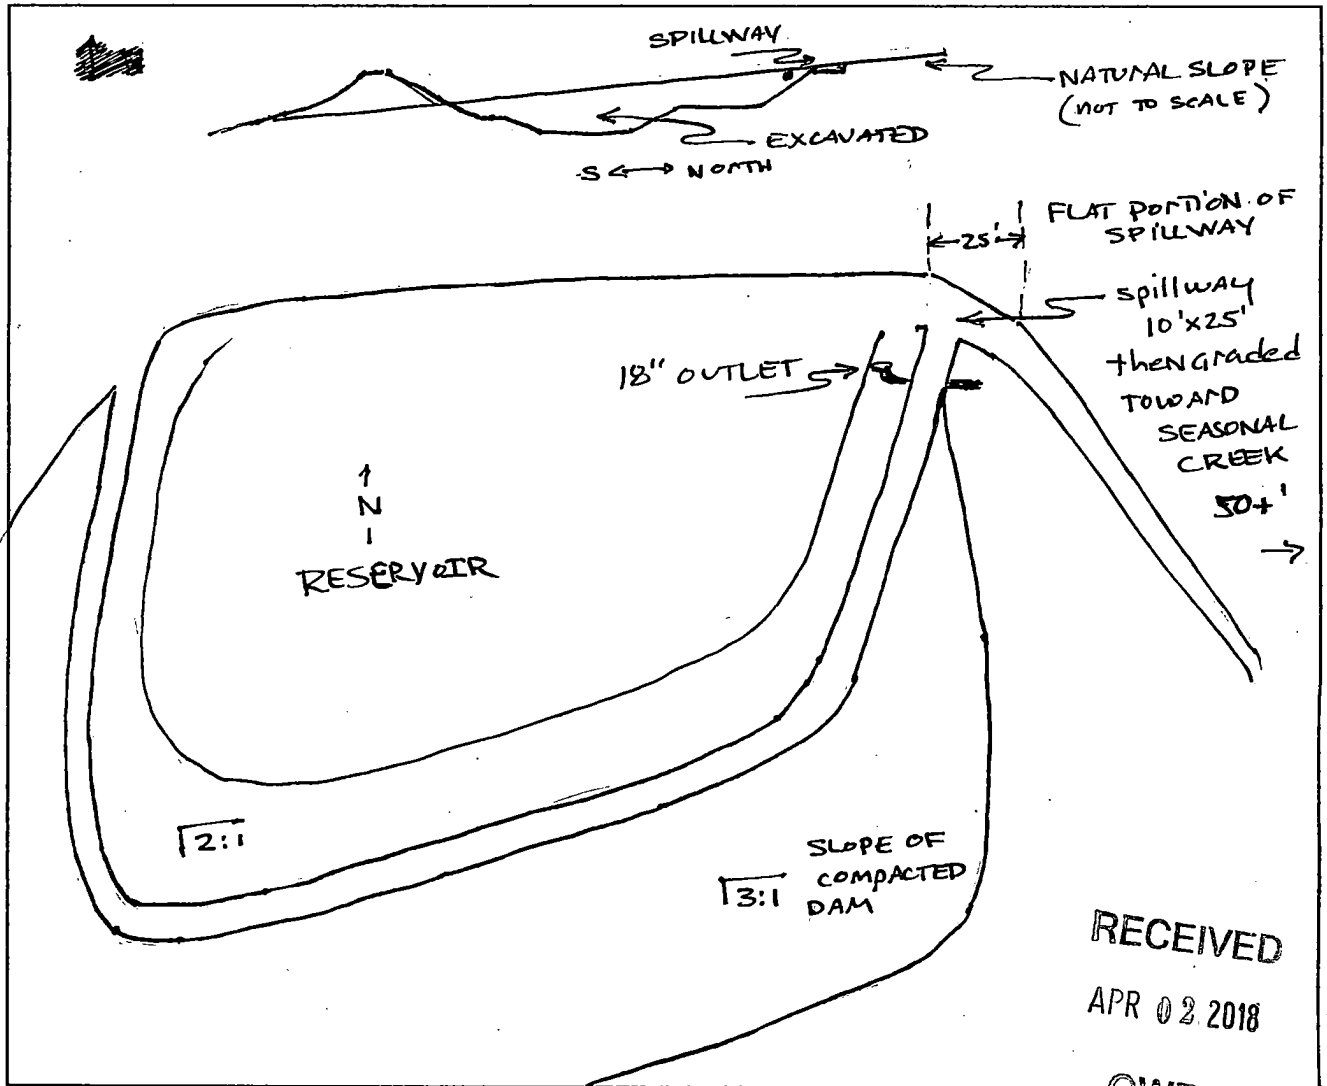 SPILLWAY
NATURAL SLOPE
(NOT TO SCALE)
EXCAVATED
S ↔ NORTH
FLAT PORTION OF
SPILLWAY
25'
spillway
10'x25'
then graded
TOWARD
SEASONAL
CREEK
50+'
18" OUTLET
N
RESERVOIR
2:1
3:1
SLOPE OF
COMPACTED
DAM
RECEIVED
APR 02 2018